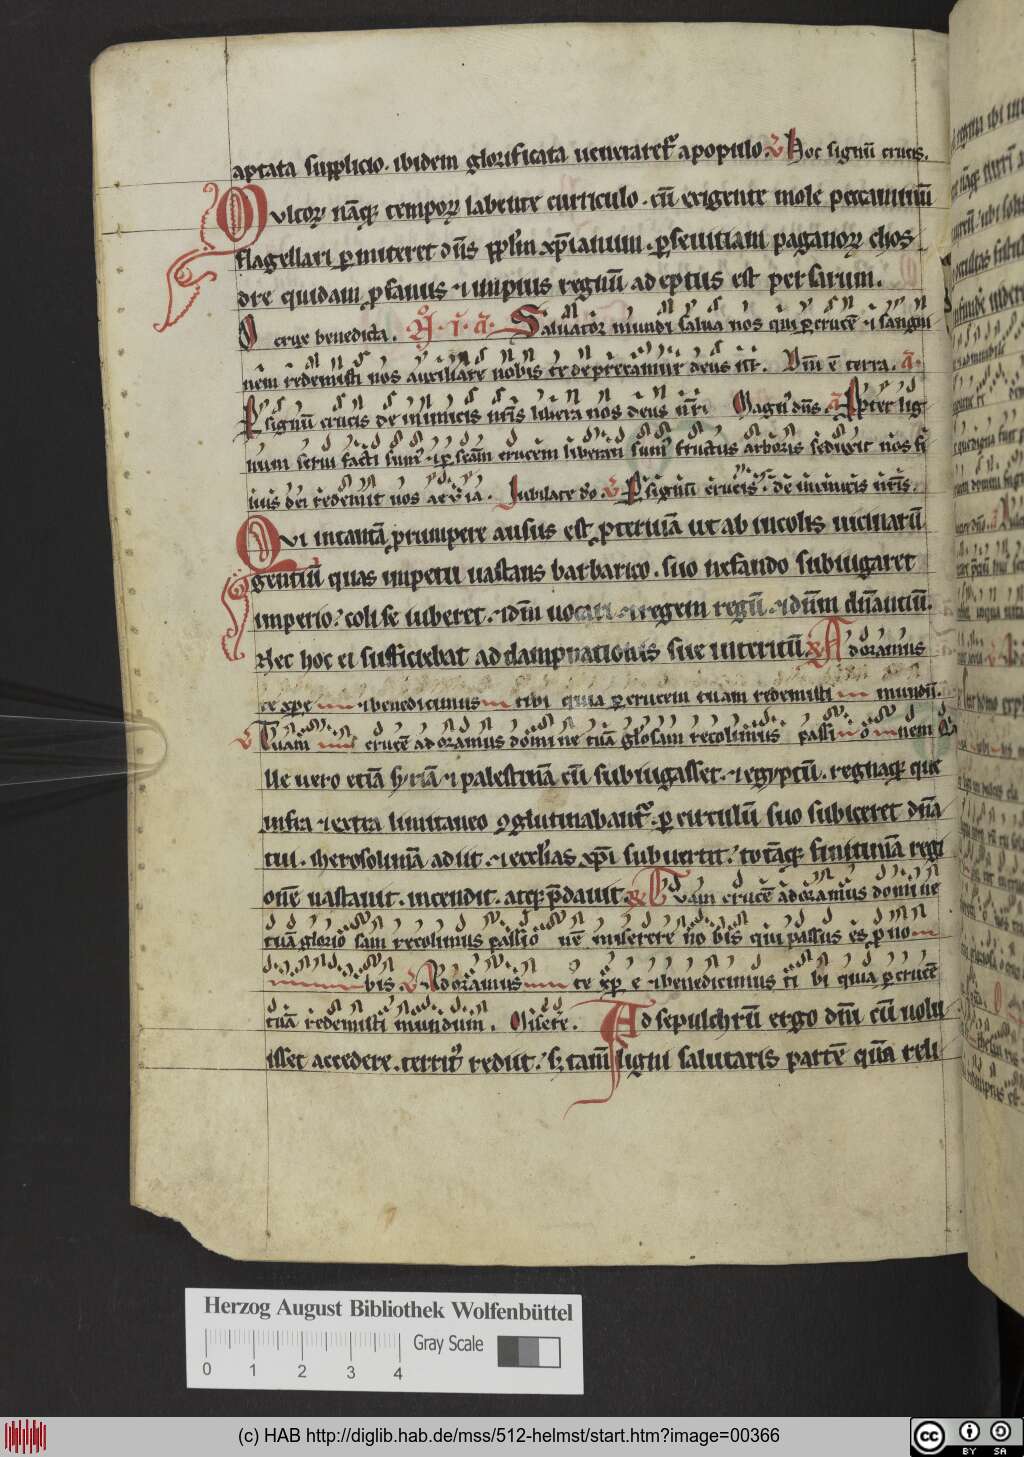 aptata supplicio. ibidem glorificata veneraret᷑ a populo. V Hoc signū crucis.
Multoꝝ nāqꝫ tempoꝝ labente curriculo. cū exigente mole peccaminū
flagellari ꝑmitteret dn̄s ppl̄m xp̄ianum. ꝑ seuitiam paganoꝝ chos
dre quidam ꝓfanus ⁊ impius regnū adeptus est persarum.
O crux benedicta. Saluator mundi salua nos qui ꝑ crucē ⁊ sangui
nem redemisti nos auxiliare nobis te deprecamur deus nr̄. Dn̄i ē terra. a
Ꝑ signum crucis de inimicis nr̄is libera nos deus nr̄. Magn᷒ dn̄s. a Ꝓpter lig
num serui facti sum᷒ ⁊ ꝑ scām crucem liberati sum᷒ fructus arboris seduxit nos fi
lius dei redemit nos aeuia. Iubilate do V Ꝑ signū crucis de inimicis nr̄is.
Qui in tantā prumpere ausus est ꝓteruiā ut ab incolis uicinarū
gentiū quas impetu uastans barbarico. suo nefando subiugaret
imperio. coli se iuberet. ⁊ dm̄ uocari ⁊ regem regū. ⁊ dn̄m dn̄antiū.
Nec hoc ei sufficiebat ad dampnationis sue interitū R Adoramus
te xp̄e ⁊ benedicimus tibi quia ꝑ crucem tuam redemisti mundū.
V Tuam crucē adoramus domine tuā gloriosam recolimus passionem I
lle uero etiā syriā ⁊ palestinā cū subiugasset. ⁊ egyptū. regnaqꝫ que
infra ⁊ extra limitaneo ꝯglutinabant᷑. ꝑ circulū suo subiceret dn̄a
tui. iherosolimā adiit. ⁊ eccl̄ias xp̄i subuertit. totāqꝫ finitimā regi
onē uastauit. incendit. atqꝫ p̄dauit. R Tuam crucē adoramus domine
tuā gloriosam recolimus passionē miserere nobis qui passus es ꝓ no
bis V Adoramus te xp̄e ⁊ benedicimus tibi quia ꝑ crucē
tuā redemisti mundum. Misere. Ad sepulchrū ergo dn̄i cū uolu
isset accedere. territ᷒ rediit. sꝫ tam̄ ligni salutaris partē quā reli
Herzog August Bibliothek Wolfenbüttel
Gray Scale
0 1 2 3 4
(c) HAB http://diglib.hab.de/mss/512-helmst/start.htm?image=00366
cc BY SA